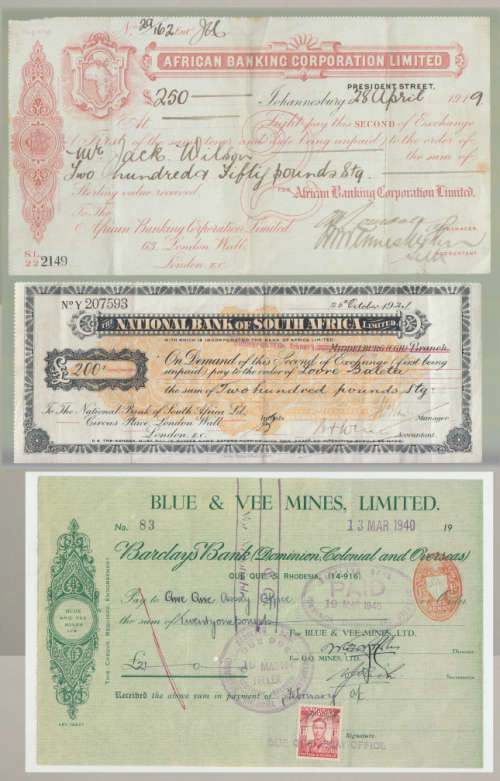 No. 29/162
AFRICAN BANKING CORPORATION LIMITED
PRESIDENT STREET.
£250 Johannesburg 28 April 1919
At Sight pay this SECOND of Exchange
(First of the same tenor and date being unpaid) to the order of
Mr Jack Wilson the sum of
Two hundred & Fifty pounds Stg.
Sterling value received. FOR African Banking Corporation Limited.
To The
African Banking Corporation Limited.
MANAGER
63, London Wall,
ACCOUNTANT
London, E.C.
S.L. 22 2149
No Y 207593 25th October 1921
THE NATIONAL BANK OF SOUTH AFRICA LIMITED
WITH WHICH IS INCORPORATED THE BANK OF AFRICA LIMITED.
MIDDELBURG Branch
£200 On Demand of this Second of Exchange (first being
unpaid) pay to the order of
the sum of Two hundred pounds Stg.
To The National Bank of South Africa Ld.
Circus Place, London Wall
Manager
London, E.C.
Accountant.
BLUE & VEE MINES, LIMITED.
No. 83 13 MAR 1940 19
Barclays Bank (Dominion, Colonial and Overseas)
QUE QUE, S. RHODESIA, (14-916)
THIS CHEQUE REQUIRES ENDORSEMENT
BLUE
AND VEE
MINES
LTD
PAID
Pay to Que Que Assay Office
the sum of Twenty one Pounds
For BLUE & VEE MINES, LTD.
Director
£21 0
For G.Q. MINES, LTD.
Secretaries
Received the above sum in payment of February a/c
Signature.
QUE QUE ASSAY OFFICE